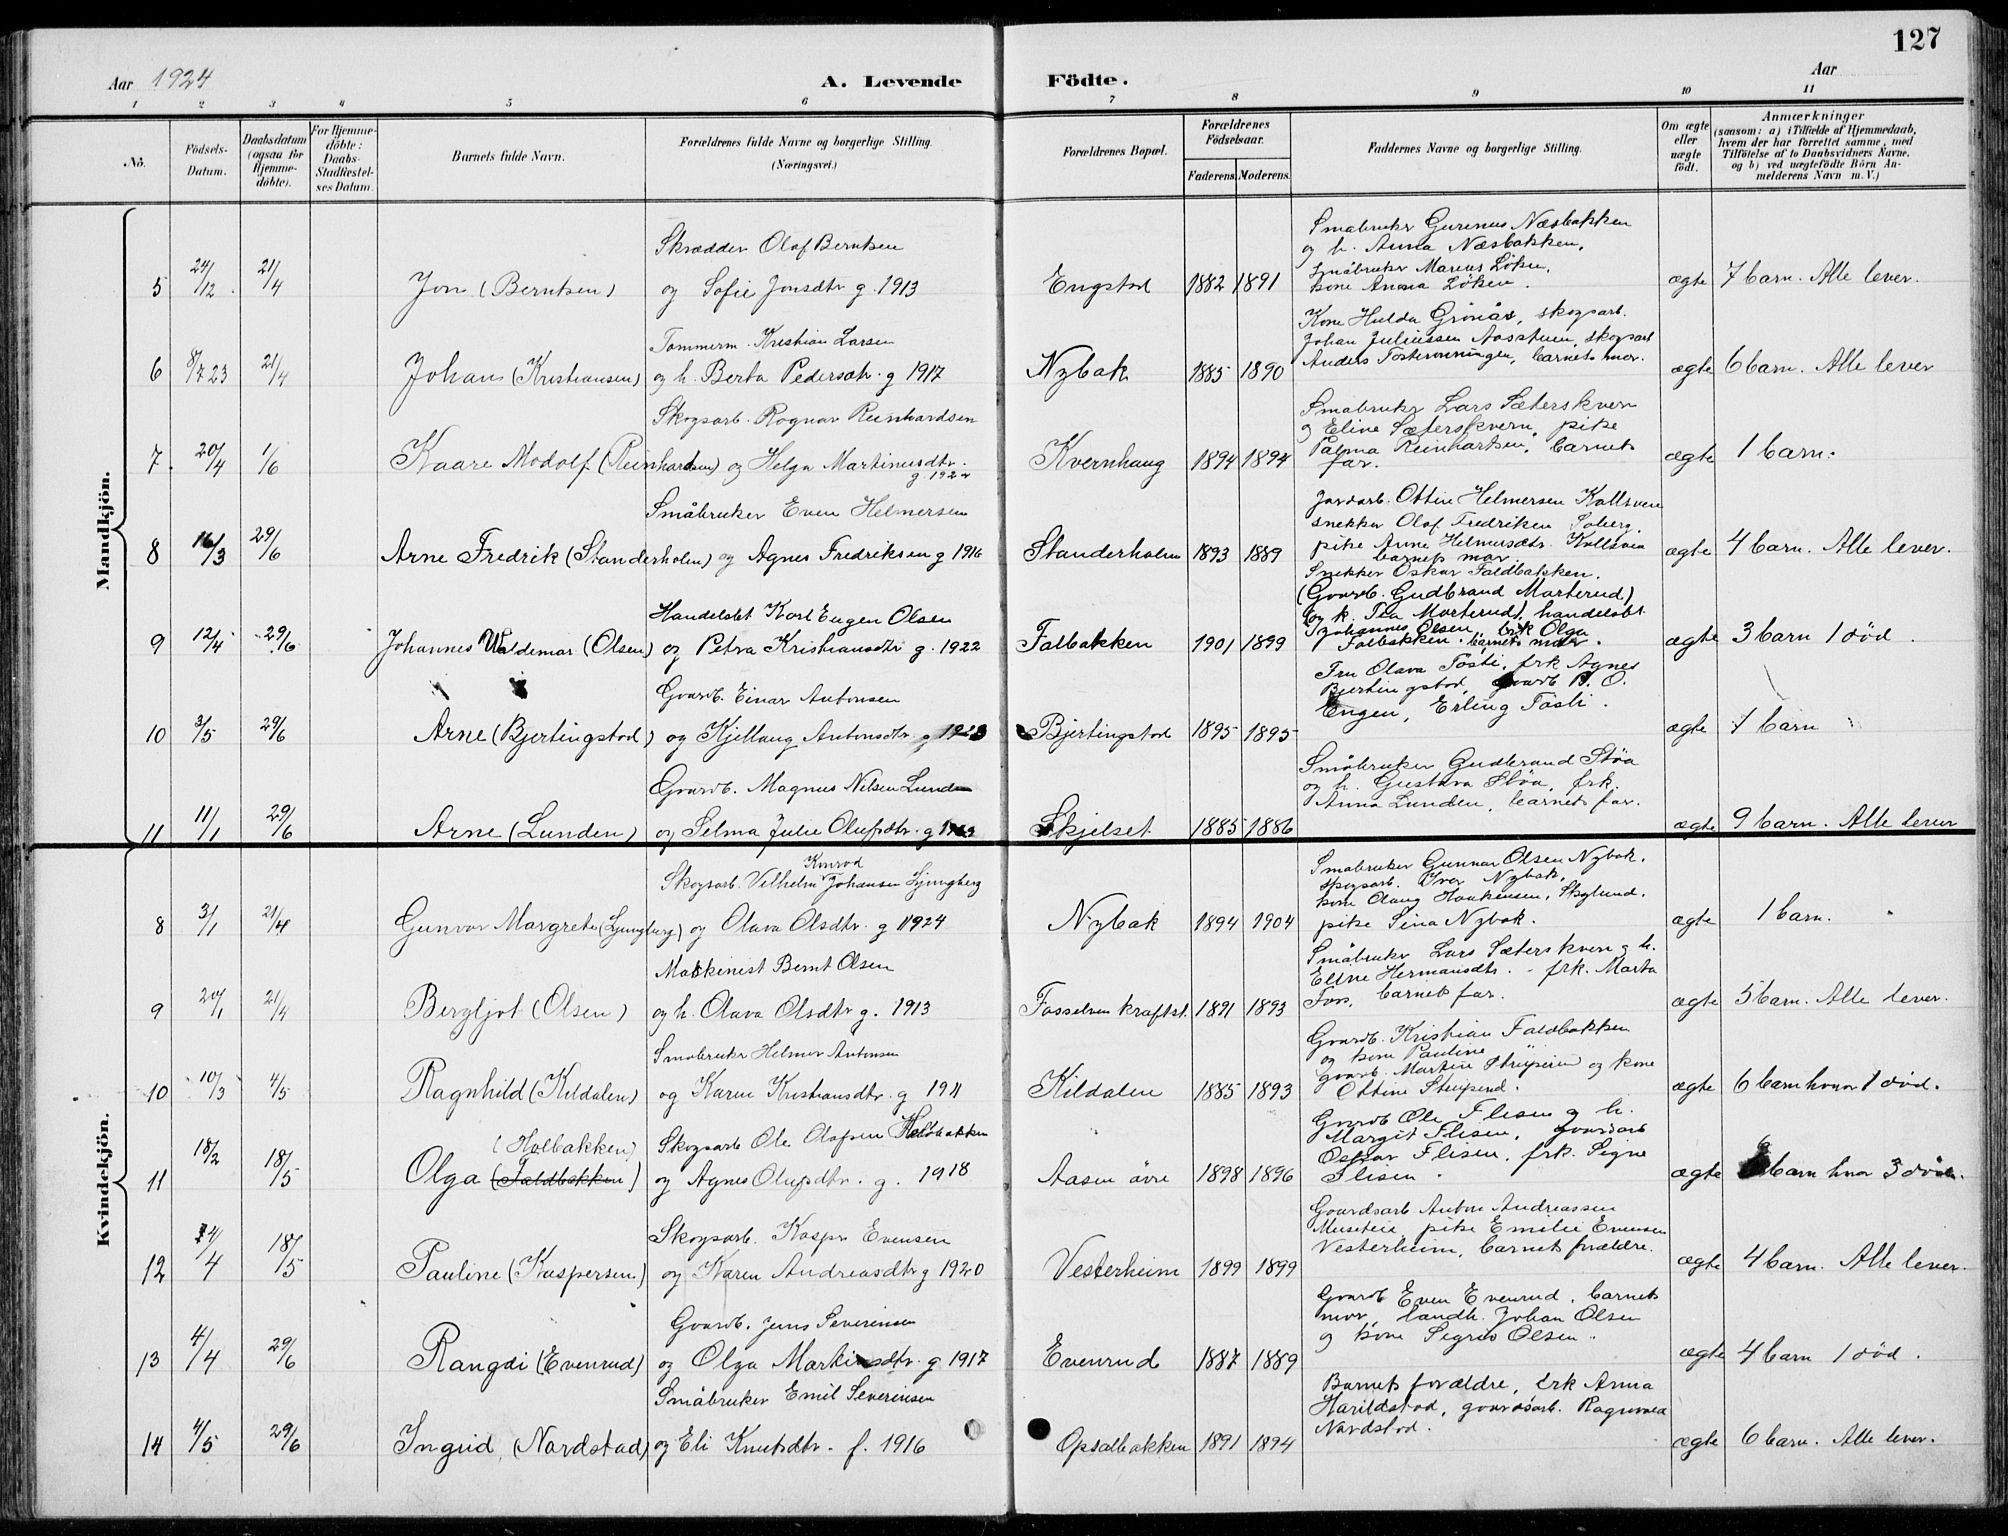 127
Aar 1924
A. Levende Födte.
Aar
1 2 3 4 5 6 7 8 9 10 11
No.
Födsels-Datum.
Daabsdatum (ogsaa for Hjemme-döbte).
For Hjemme-döbte: Daabs-Stadfæstel-ses Datum.
Barnets fulde Navn.
Forældrenes fulde Navne og borgerlige Stilling. (Næringsvei.)
Forældrenes Bopæl.
Forældrenes Födselsaar.
Faderens. Moderens.
Faddernes Navne og borgerlige Stilling.
Om ægte eller uægte født.
Anmærkninger
(saasom: a) i Tilfælde af Hjemmedaab,
hvem der har forrettet samme, med
Tilföielse af to Daabsvidners Navne,
og b) ved uægtefödte Börn An-
melderens Navn m. V.)
Mandkjön.
Skrædder Olaf Berntsen
Smabruker Gurenus Næsbakken
og h. Anna Næsbakken,
Småbruker Marius Löken,
kone Anna Löken.
5 24/12 21/4 Jon (Berntsen) og Sofie Jonsdtr g. 1913 Engstad 1882 1891 ægte 7 barn. Alle lever.
Tømmerm. Kristian Larsen
Kone Hulda Grönås, skogsarb.
Johan Juliussen Aasstuen, skogsarb
Anders Fosterenningen, barnets mor.
6 8/7 23 21/4 Johan (Kristiansen) og h. Berta Pedersdtr. g 1917 Nybak 1885 1890 ægte 6 barn. Alle lever
Skogsarb. Ragnar Reinhardsen
Smabruker Lars Sæterskvern
og Eline Sæterskvern, pike
Palma Reinhartsen, barnets
far.
7. 20/4 1/6 Kaare Modolf (Reinhardsen) og Helga Martinusdtr. g. 1922 Kvernhaug 1894 1894 ægte 1 barn.
Småbruker Even Helmersen
Jordarb. Ottin Helmersen Kollsveen
snekker Olaf Fredriksen Soberg,
pike Anne Helmersdtr. Kollsveen
barnets mor.
8 16/3 29/6 Arne Fredrik (Standerholen) og Agnes Fredriksen g 1916 Standerholen 1893 1889 ægte 4 barn. Alle lever.
Handelsbt Karl Eugen Olsen
Snekker Oskar Faldbakken.
(Gaardb. Gudbrand Marterud)
og k. Tea Marterud, handelsbt
Johannes Olsen, frk Olga
Falbakken. barnets moder.
9 12/4 29/6 Johannes Waldemar (Olsen) og Petra Kristiansdtr g. 1922 Falbakken 1901 1899 ægte 3 barn 1 död.
Gaardb. Einar Antonsen
Fru Olava Tøsti, frk Agnes
Bjertingstad, gaardb P. O.
Engen, Erling Tøsti.
10 3/5 29/6 Arne (Bjertingstad) og Kjellaug Antonsdtr. g 1923 Bjertingstad 1895 1895 ægte 1 barn
Gaardb. Magnus Nilsen Lunden
Småbruker Gudbrand Støa
og h. Gustava Støa, frk.
Anna Lunden, barnets far.
11 11/1 29/6 Arne (Lunden) og Selma Julie Olufsdtr. g Skjelset 1885 1886 ægte 9 barn. Alle lever
Kvindekjön.
Skogsarb. Vilhelm Konrad Johansen Ljungberg
Smabruker Gunnar Olsen Nybak,
skogsarb. Iver Nybak,
kone Olaug Haakensen, Skoglund,
pike Sina Nybak.
8 3/1 21/4 Gunvor Margrete (Ljungberg) og Olava Olsdtr. g 1924 Nybak 1894 1904 ægte 1 barn.
Maskinist Bernt Olsen
Småbruker Lars Sæterskvern og h.
Eline Hermansdtr. - frk. Marta
Foss, barnets far.
9 20/1 21/4 Bergljot (Olsen) og h. Olava Olsdtr g. 1913 Fosselven kraftst. 1891 1893 ægte 5 barn. Alle lever.
Smabruker Helmer Antonsen
Gaardb. Kristian Faldbakken
og kone Pauline
gaardb. Martin Strupsend og kone
Ottine Strupsend.
10 10/3 4/5 Ragnhild (Kildalen) og Karen Kristiansdtr. g 1911 Kildalen 1885 1893 ægte 6 barn hvorav 1 död.
(Holbakken) Skogsarb Ole Olafsen Holbakken
Gaardb Ole Flisen og h.
Margit Flisen, gaardsarb
Oskar Flisen, frk. Signe
Flisen.
11 18/2 18/5 Olga (Faldbakken) og Agnes Olufsdtr. g. 1918 Aasen øvre 1898 1896 ægte barn hvor 3 döde.
Skogsarb. Kaspr Evensen
Gaardsarb Anton Andreassen
Museteie pike Emilie Evensen
Vesterheim, barnets forældre.
12 4/4 18/5 Pauline (Kaspersen) og Karen Andreasdtr g 1920 Vesterheim 1899 1899 ægte 4 barn. Alle lever.
Gaardb. Jens Severinsen
Gaardb Even Evenrud, barnets
mor, Handlb. Johan Olsen
og kone Sigrid Olsen.
13 4/4 29/6 Rangdi (Evenrud) og Olga Martinsdtr. g 1917 Evenrud 1887 1889 ægte 4 barn 1 död.
Småbruker Emil Severinsen
Barnets forældre, frk Anna
Harildstad, gaardsarb. Ragnvald
Nordstad.
14 4/5 29/6 Ingrid (Nordstad) og Eli Knutsdtr. f. 1916 Opsalbakken 1891 1894 ægte 6 barn. Alle lever.